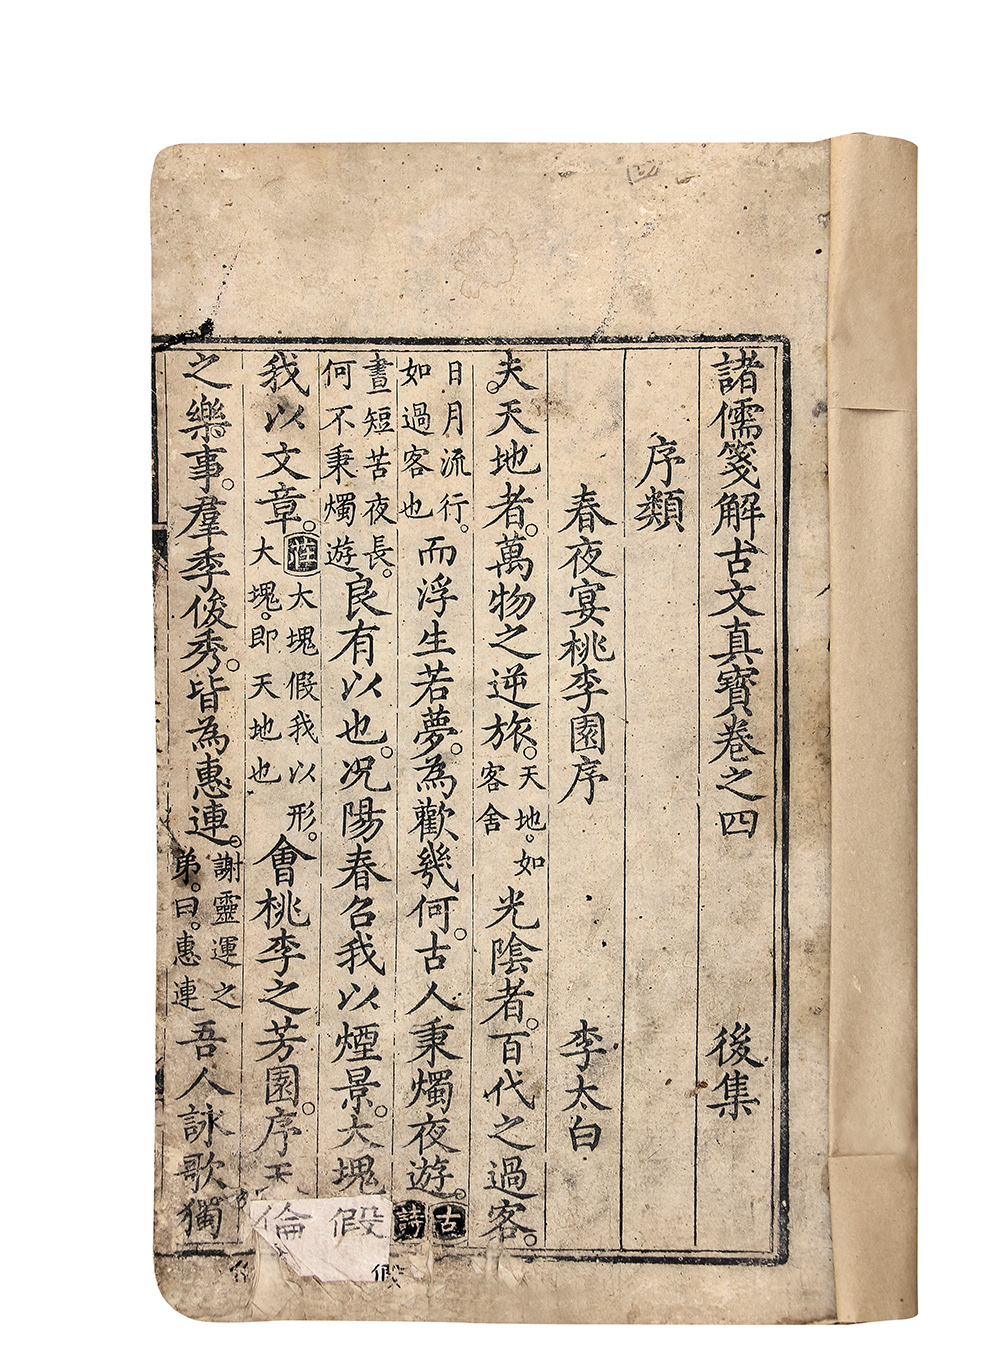 諸儒箋解古文真寶卷之四 後集
序類
春夜宴桃李園序 李太白
夫。天地者。萬物之逆旅。天地。如客舍光陰者。百代之過客。
日月流行。如過客也而浮生若夢。為歡幾何。古人秉燭夜遊。古詩
晝短苦夜長。何不秉燭遊良有以也。況陽春召我以煙景。大塊假
我以文章。注大塊假我以形。大塊。即天地也會桃李之芳園。序天倫
之樂事。羣季俊秀。皆為惠連。謝靈運之弟。曰。惠連吾人詠歌獨
假